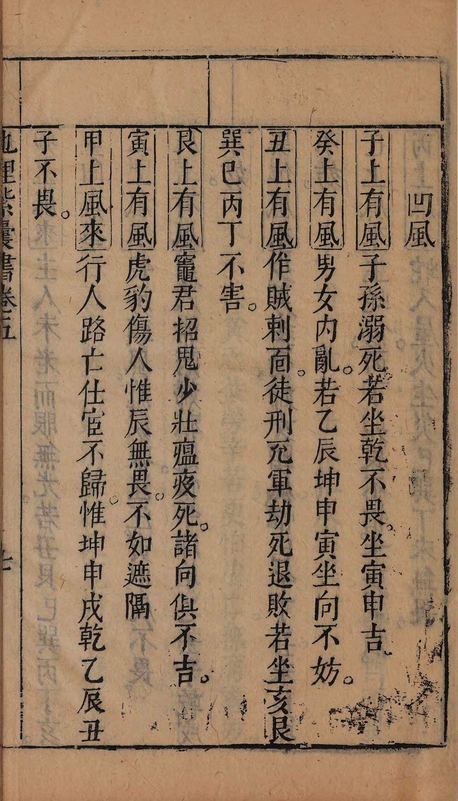 凹風
子上有風子孫溺死若坐乾不畏坐寅申吉
癸上有風男女内亂若乙辰坤申寅坐向不妨
丑上有風作賊刺面徒刑充軍劫死退敗若坐亥艮
巽巳丙丁不害
艮上有風竈君招鬼少壯瘟疫死諸向俱不吉
寅上有風虎豹傷人惟辰無畏不如遮隔
甲上風來行人路亡仕宦不歸惟坤申戌乾乙辰丑
子不畏
地理紫囊書卷五
七